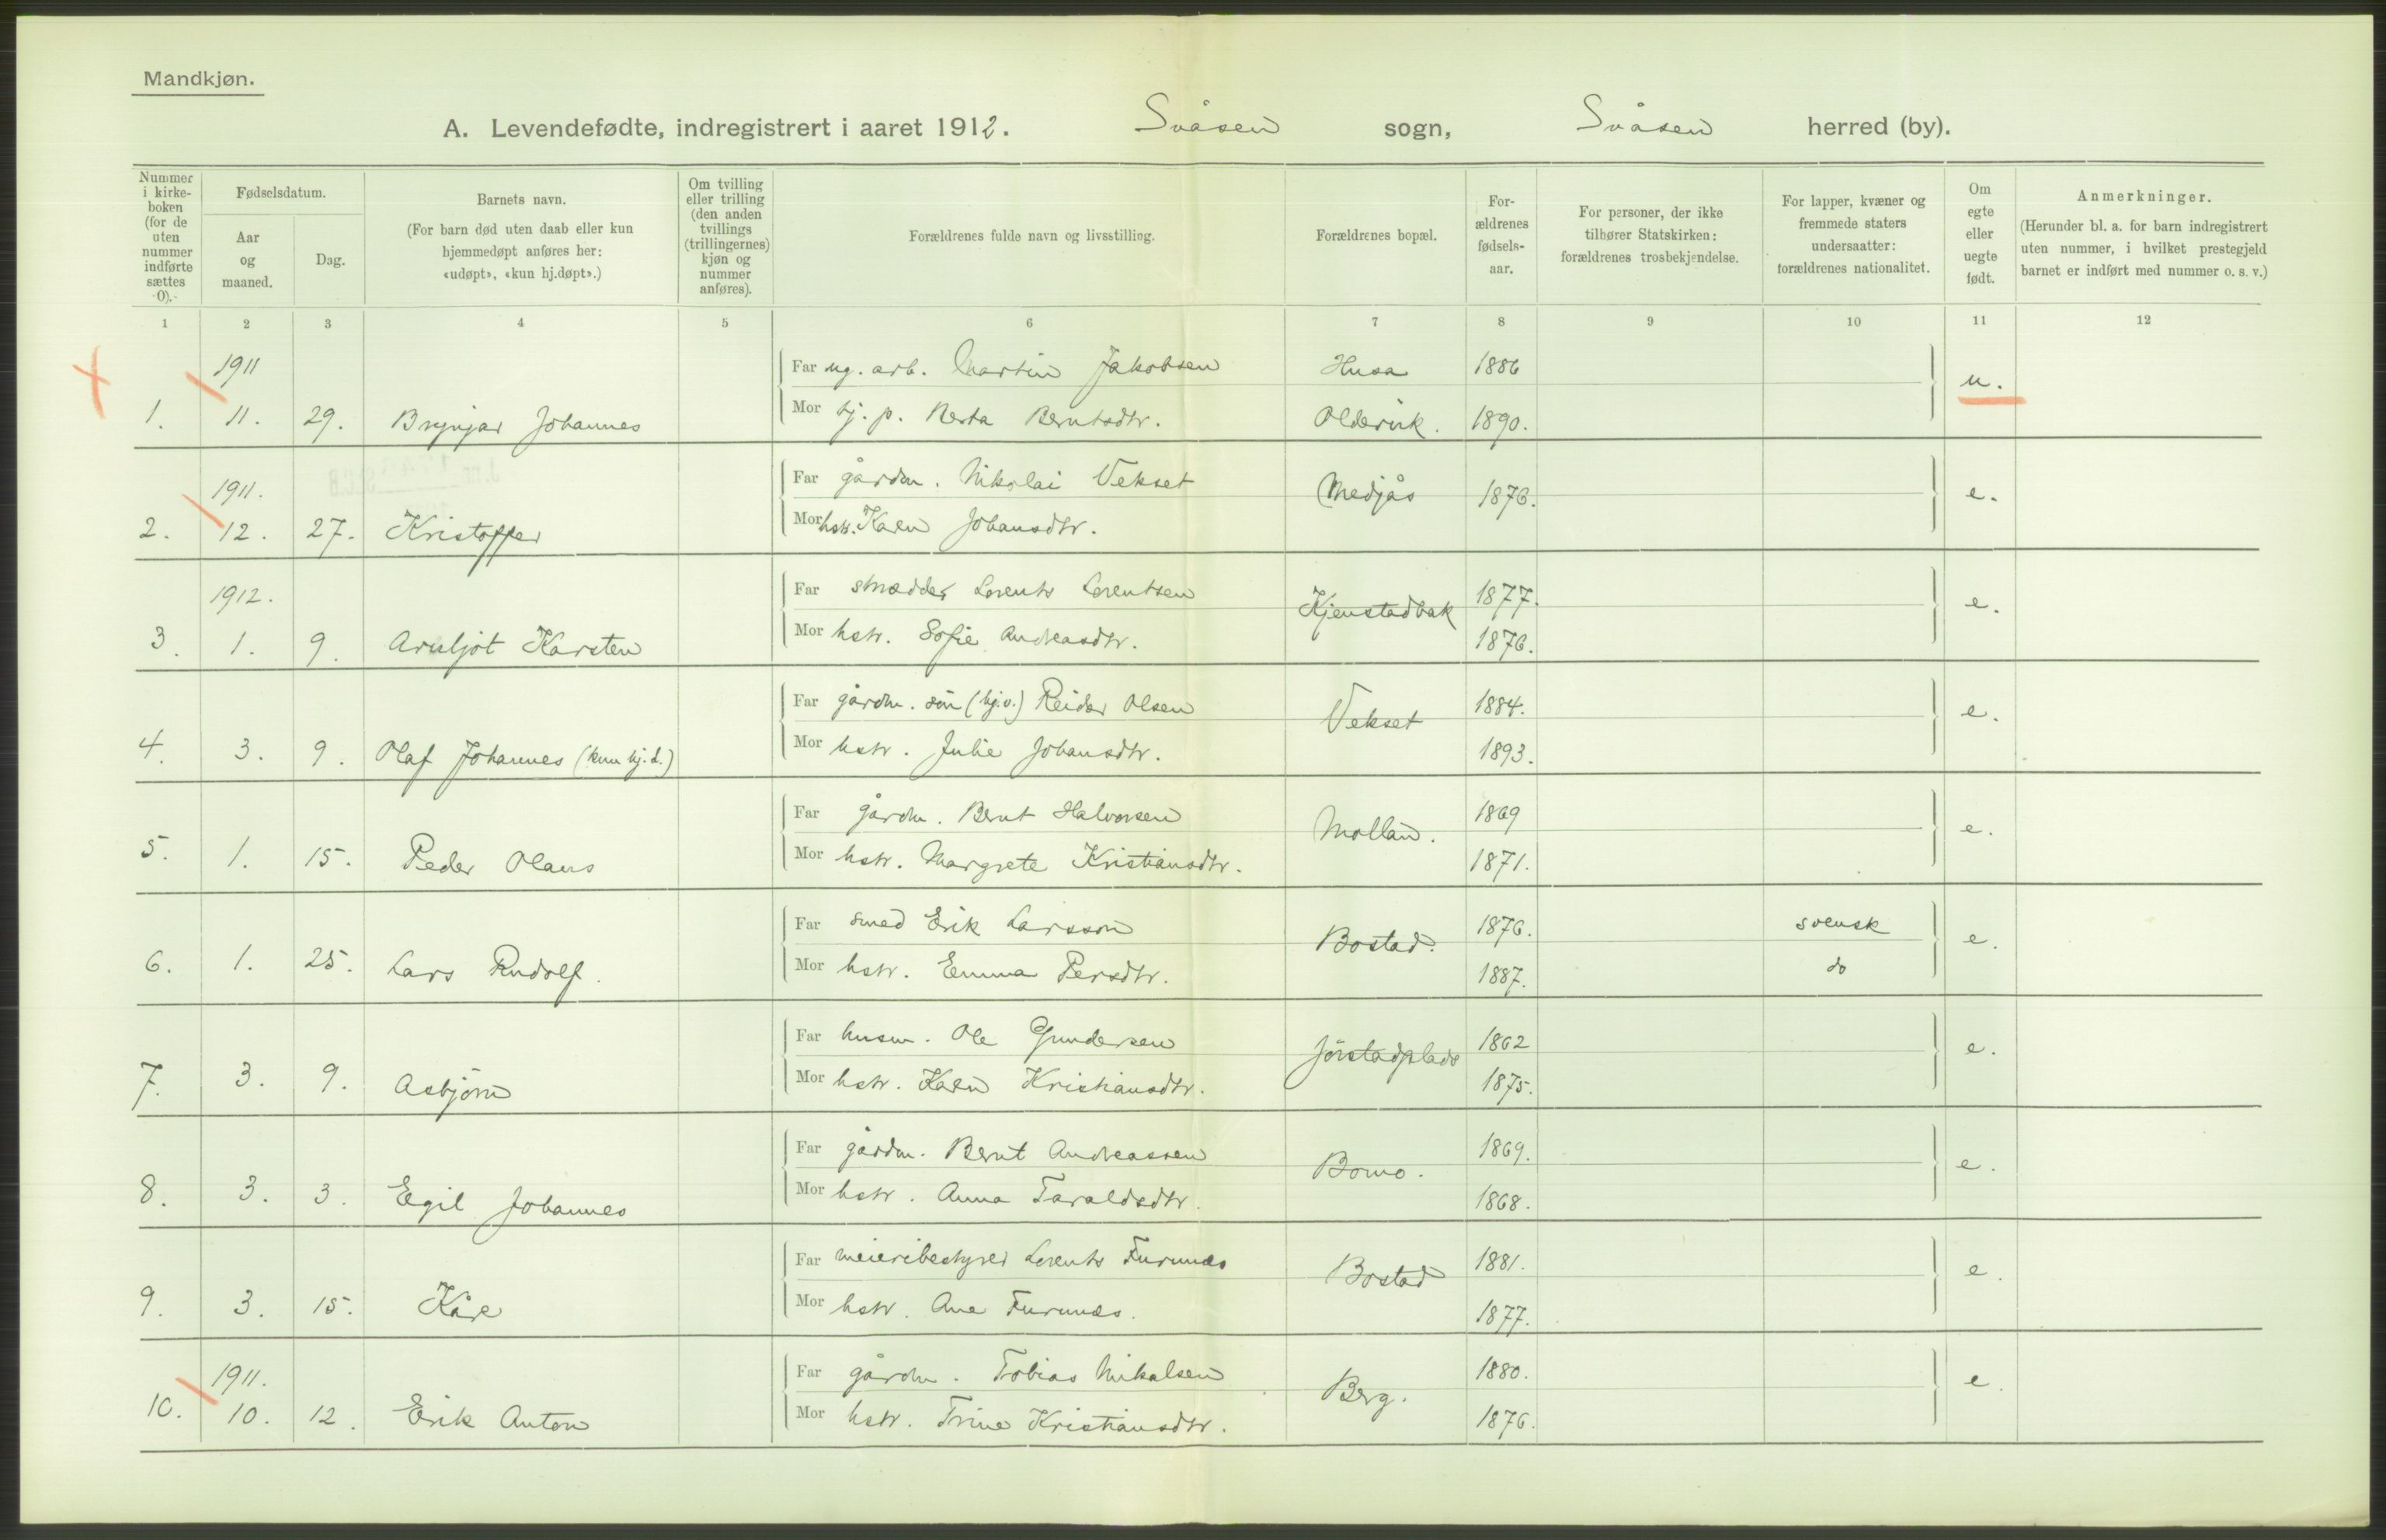 Mandkjøn.
A. Levendefødte, indregistrert i aaret 1912. Snåsen sogn, Snåsen herred (by).
Nummer i kirke-boken (for de uten nummer indførte sættes 0).
Fødselsdatum.
Aar og maaned.
Dag.
Barnets navn.
(For barn død uten daab eller kun hjemmedøpt anføres her: «udøpt», «kun hj.døpt».)
Om tvilling eller trilling (den anden tvillings (trillingernes) kjøn og nummer anføres).
Forældrenes fulde navn og livsstilling.
Forældrenes bopæl.
For-ældrenes fødsels-aar.
For personer, der ikke tilhører Statskirken: forældrenes trosbekjendelse.
For lapper, kvæner og fremmede staters undersaatter: forældrenes nationalitet.
Om egte eller uegte født.
Anmerkninger.
(Herunder bl. a. for barn indregistrert uten nummer, i hvilket prestegjeld barnet er indført med nummer o. s. v.)
1 2 3 4 5 6 7 8 9 10 11 12
1911 Far ug. arb. Martin Jakobsen Husa 1886 u.
1. 11. 29. Brynjar Johannes Mor hj. p. Berta Berntsdtr. Oldervik. 1890.
1911. Far gårdm. Nikolai Vekset Medjås 1876. e.
2. 12. 27. Kristoffer Mor hstr. Karen Johansdtr.
1912. Far skrædder Lorents Lorentsen Kjenstadbak 1877. e.
3. 1. 9. Arnljot Karsten Mor hstr. Sofie Andreasdtr. 1876.
Far gårdm. søn (hj.v.) Reidar Olsen Vekset 1884. e.
4. 3. 9. Olaf Johannes (kun hj.d.) Mor hstr. Julie Johansdtr. 1893.
Far gårdm. Bernt Halvorsen Mollan. 1869 e.
5. 1. 15. Peder Olaus Mor hstr. Margrete Kristiansdtr. 1871.
Far smed Erik Larsson Bostad. 1876. svensk e.
6. 1. 25. Lars Rudolf. Mor hstr. Emma Persdtr. 1887. do
Far husm. Ole Gundersen Jørstadplads 1862 e.
7. 3. 9. Asbjørn Mor hstr. Karen Kristiansdtr. 1875.
Far gårdm. Bernt Andreassen Bomo. 1869. e.
8. 3. 3. Egil Johannes Mor hstr. Anna Taraldsdtr. 1868.
Far meieribestyrer Lorents Furunæs Bostad 1881. e.
9. 3. 15. Kåre Mor hstr. Ane Furunæs. 1877.
1911. Far gårdm. Tobias Mikalsen Berg. 1880. e.
10. 10. 12. Erik Anton Mor hstr. Trine Kristiansdtr. 1876.